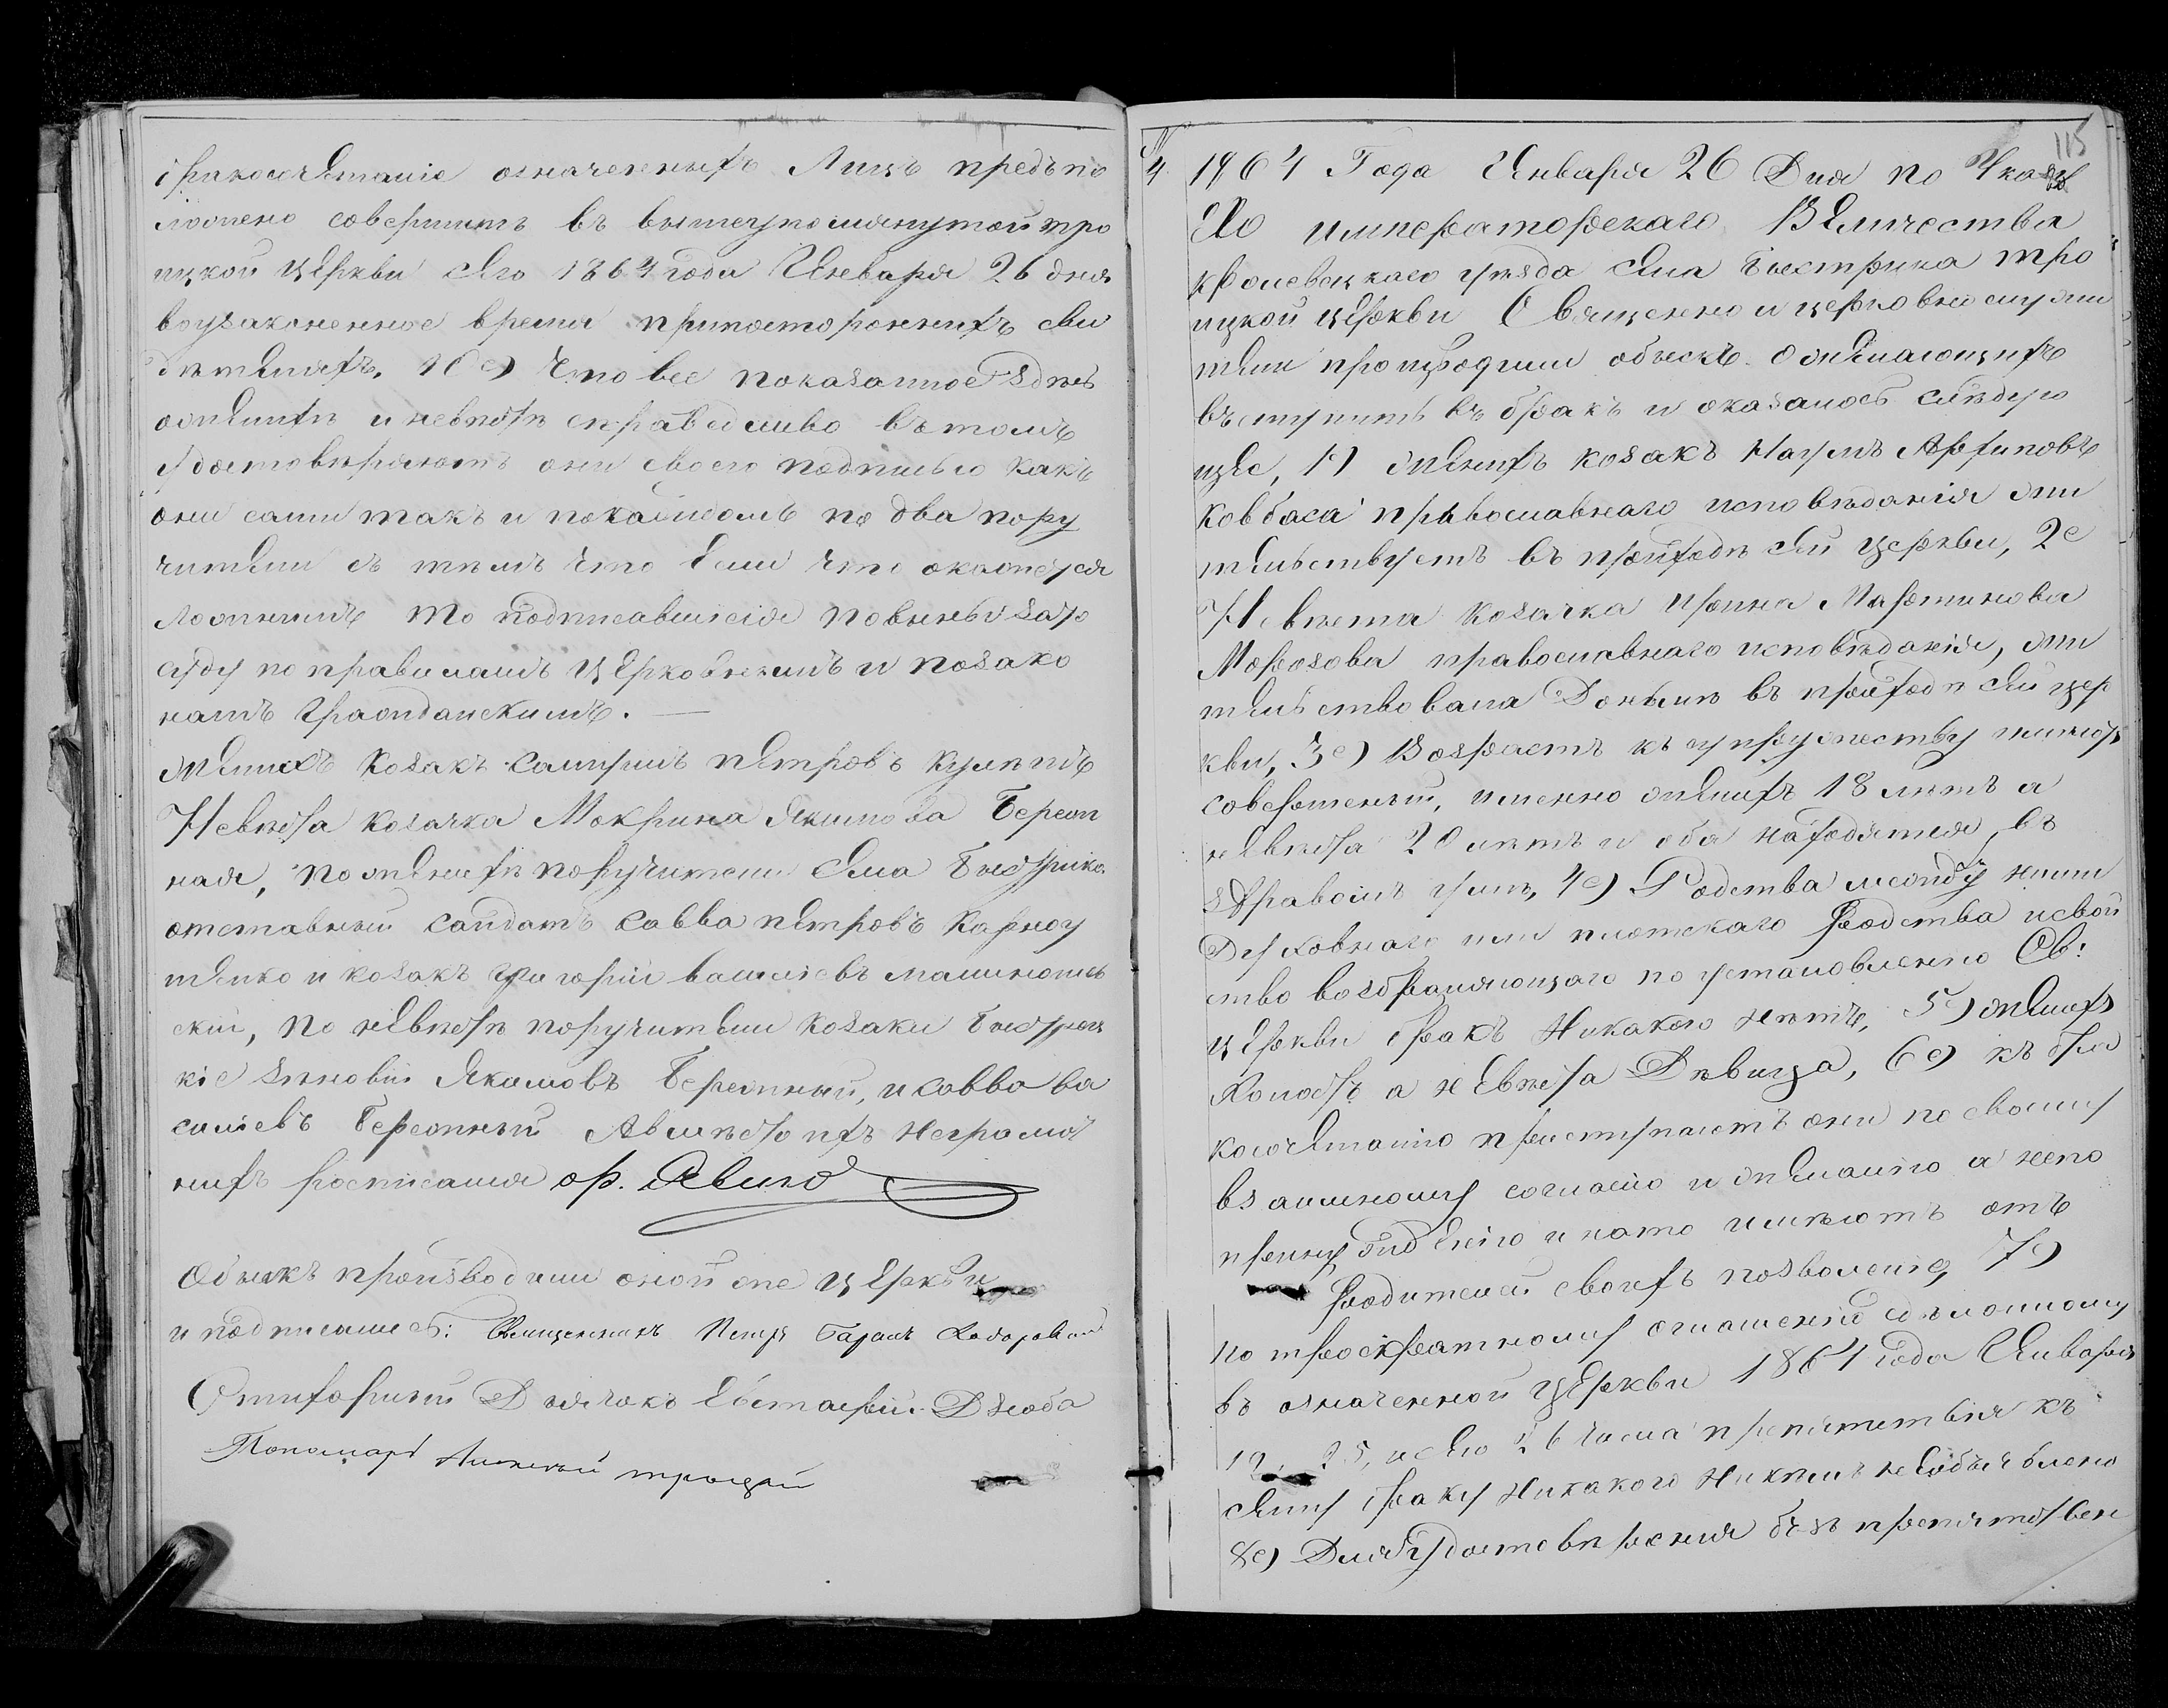 бракосочетаніе означенныхъ Лицъ предпо
ложено совершить въ вышеупомянутой тро
ицкой церкви сего 1864 года Генваря 26 дня
воузаконенное время припосторонныхъ сви
дѣтеляхъ, 10е) Что все показанное здѣсь
ожених и невѣстѣ справедливо вътомъ
удостовѣряютъ они своею подписью какъ
они сами такъ и покаждомъ по два пору
чители съ тѣмъ что если что окажется
ложнымъ то подписавшіеся повинны за то
суду по правиламъ церковнымъ и позако
намъ гражданскимъ. —
женихъ козакъ петровъ
Невѣста козачка Мокрина Якимова Береж
ная, по женихѣ поручители села Быстрика
отставный салдатъ Савва петровъ Карноу
шенко и козакъ григорій василіевъ малиновъ
скій, по невѣстѣ поручители козаки Быстриц
кіе Зѣновій Якимовъ Бережный, и савва ва
силіевъ Бережный Авмѣсто ихъ неграмот
ныхъ росписался
Обыскъ производили оной же церкви
и подписались: Священникъ Петръ
Стихарный Дьячокъ Евстафій Дзюба
Пономарь троцкій
115
№
4 1864 Года Января 26 Дня по Указу
Его императорскаго Величества
кролевецкаго уѣзда села Быстрика тро
ицкой церкви Священно и церковнослужи
тели производили обыскъ о желающихъ
вступить въ бракъ и оказалось слѣдую
щее, 1е) женихъ козакъ Наумъ Архиповъ
Ковбаса православнаго исповѣданія жи
тельствуетъ въ приходѣ сей церкви, 2е
Невѣста козачка Ирина Мартинова
Морозова православнаго исповѣданія, жи
тельствовала Донынѣ въ приходѣ сей цер
кви, 3е) Возрастъ къ супружеству имѣютъ
совершенный, именно женихъ 18 лѣтъ а
невѣста 20 лѣтъ и оба находятся въ
здравомъ умѣ, 4е) Родства между ними
Духовнаго или плотскаго родства исвой
ство возбраняющаго по установленію Св:
церкви бракъ Никакого нѣтъ, 5е) женихъ
Холостъ а невѣста Дѣвица, 6е) къ бра
косочетанію приступаютъ они по своему
взаимному согласію и желанію а непо
принужденію и нато имѣютъ отъ
родителей своихъ позволеніе, 7е)
по троекратному оглашеній сдѣланному
въ означенной церкви 1864 года Января
19, 25, и сего 26 числа препятствія къ
сему браку Никакого Никѣмъ необъявлено
8е) Для удостовѣренія безъ препятствен